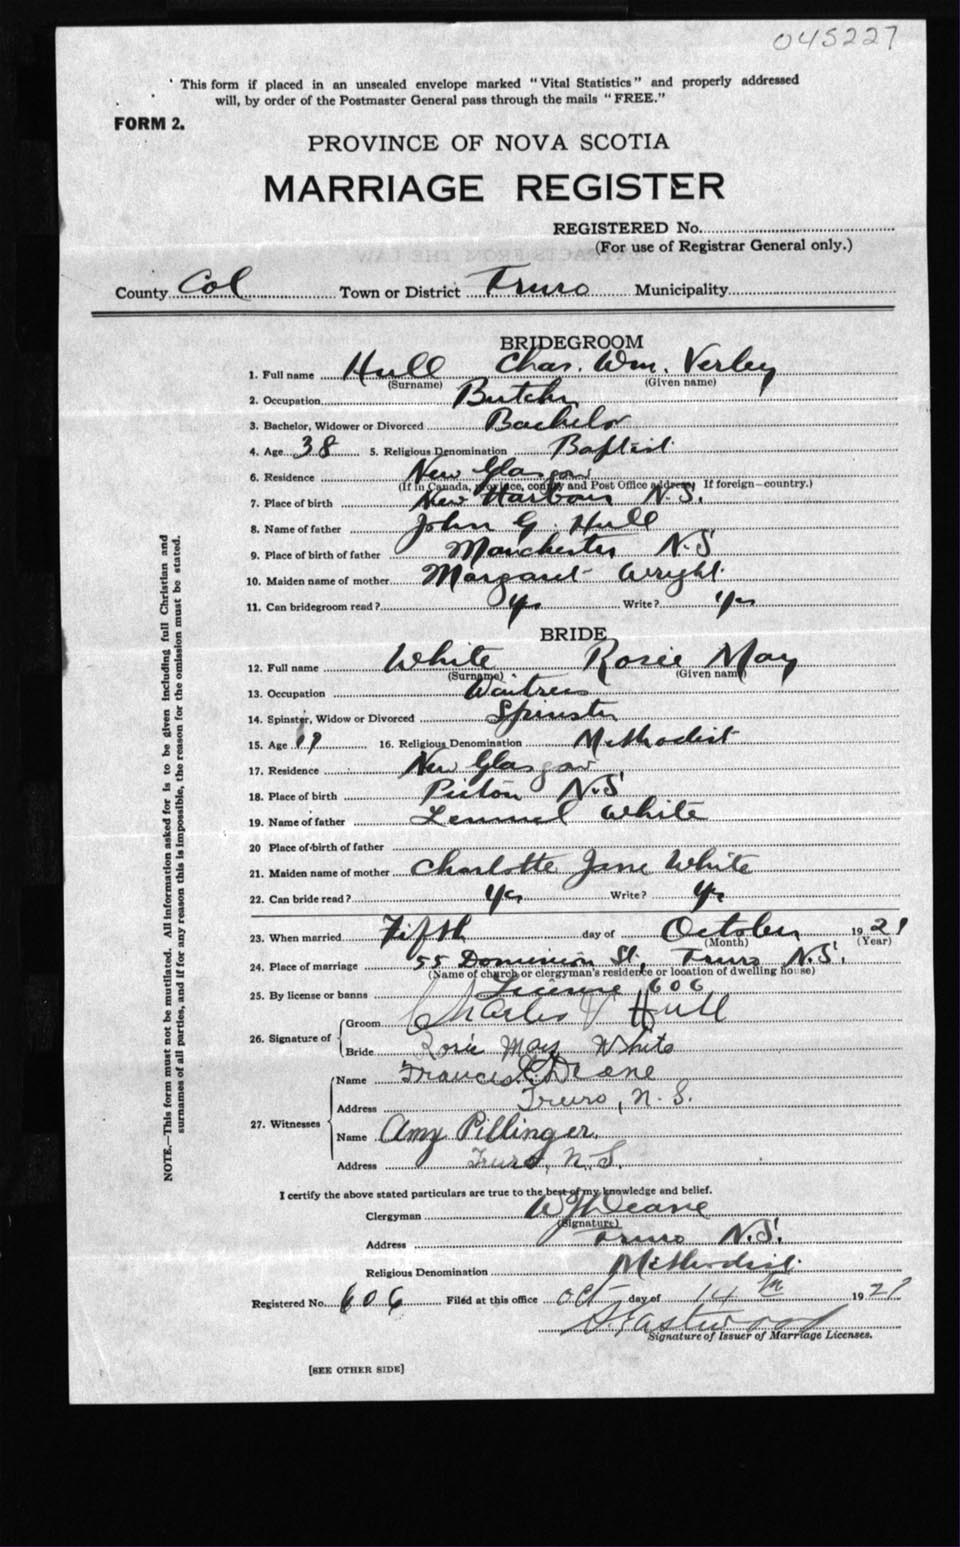 045227
This form if placed in an unsealed envelope marked "Vital Statistics" and properly addressed
will, by order of the Postmaster General pass through the mails "FREE."
FORM 2.
PROVINCE OF NOVA SCOTIA
MARRIAGE REGISTER
REGISTERED No.
(For use of Registrar General only.)
County Col Town or District Truro Municipality
BRIDEGROOM
1. Full name Hull Chas. Wm. Verley
(Surname) (Given name)
2. Occupation Butcher
3. Bachelor, Widower or Divorced Bachelor
4. Age 38 5. Religious Denomination Baptist
6. Residence New Glasgow
(If in Canada, province, county and Post Office address. If foreign—country.)
7. Place of birth New Harbour N.S.
8. Name of father John G. Hull
9. Place of birth of father Manchester N.S
10. Maiden name of mother Margaret Wright
11. Can bridegroom read? Yes Write? Yes
BRIDE
12. Full name White Rosie May
(Surname) (Given name)
13. Occupation Waitress
14. Spinster, Widow or Divorced Spinster
15. Age 19 16. Religious Denomination Methodist
17. Residence New Glasgow
18. Place of birth Pictou N.S
19. Name of father Lemuel White
20 Place of birth of father
21. Maiden name of mother Charlotte Jane White
22. Can bride read? Yes Write? Yes
23. When married Fifth day of October 1921
(Month) (Year)
24. Place of marriage 55 Dominion St. Truro N.S.
(Name of church or clergyman's residence or location of dwelling house)
25. By license or banns License 606
26. Signature of Groom Charles V Hull
Bride Rosie May White
27. Witnesses Name Frances E. Deane
Address Truro, N.S.
Name Amy Pillinger
Address Truro, N.S.
I certify the above stated particulars are true to the best of my knowledge and belief.
Clergyman W H Deane
(Signature)
Address Truro N.S.
Religious Denomination Methodist
Registered No. 606 Filed at this office Oct day of 14th 1921
Eastwood
Signature of Issuer of Marriage Licenses.
[SEE OTHER SIDE]
NOTE.—This form must not be mutilated. All information asked for is to be given including full Christian and
surnames of all parties, and if for any reason this is impossible, the reason for the omission must be stated.